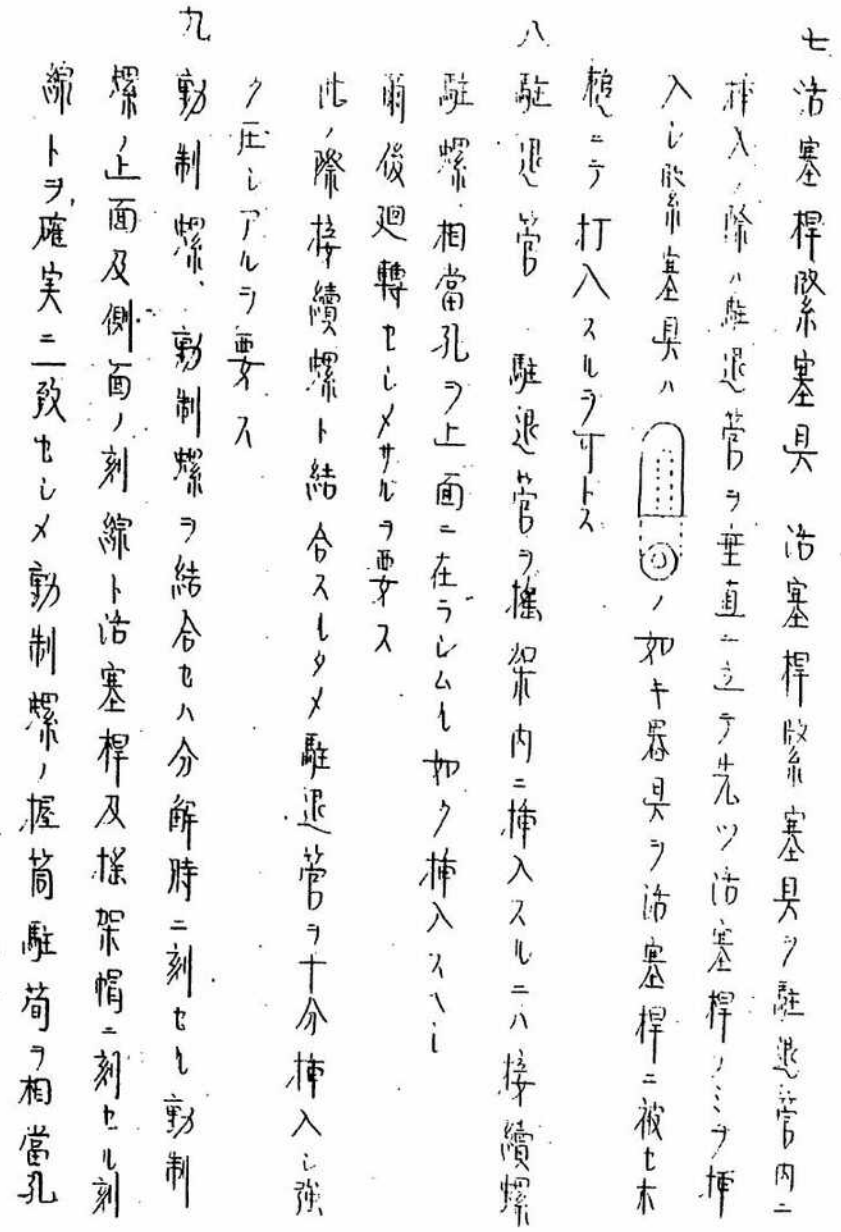 七 活塞桿緊塞具　活塞桿緊塞具ヲ駐退管内ニ
挿入ノ際ハ駐退管ヲ垂直ニ立テ先ツ活塞桿ノミヲ挿
入シ緊塞具ハ
ノ如キ器具ヲ活塞桿ニ被セ木
槌ニテ打入スルヲ可トス
八 駐退管　駐退管ヲ搖架内ニ挿入スルニハ接續螺
駐螺相當孔ヲ上面ニ在ラシムル如ク挿入スヘシ
爾後廻轉セシメサルヲ要ス
此ノ際接續螺ト結合スルタメ駐退管ヲ十分挿入シ強
ク圧シアルヲ要ス
九 動制螺、動制螺ヲ結合セハ分解時ニ刻セル動制
螺ノ上面及側面ノ刻線ト活塞桿及搖架帽ニ刻セル刻
線トヲ確実ニ一致セシメ動制螺ノ握筒駐筍ヲ相當孔